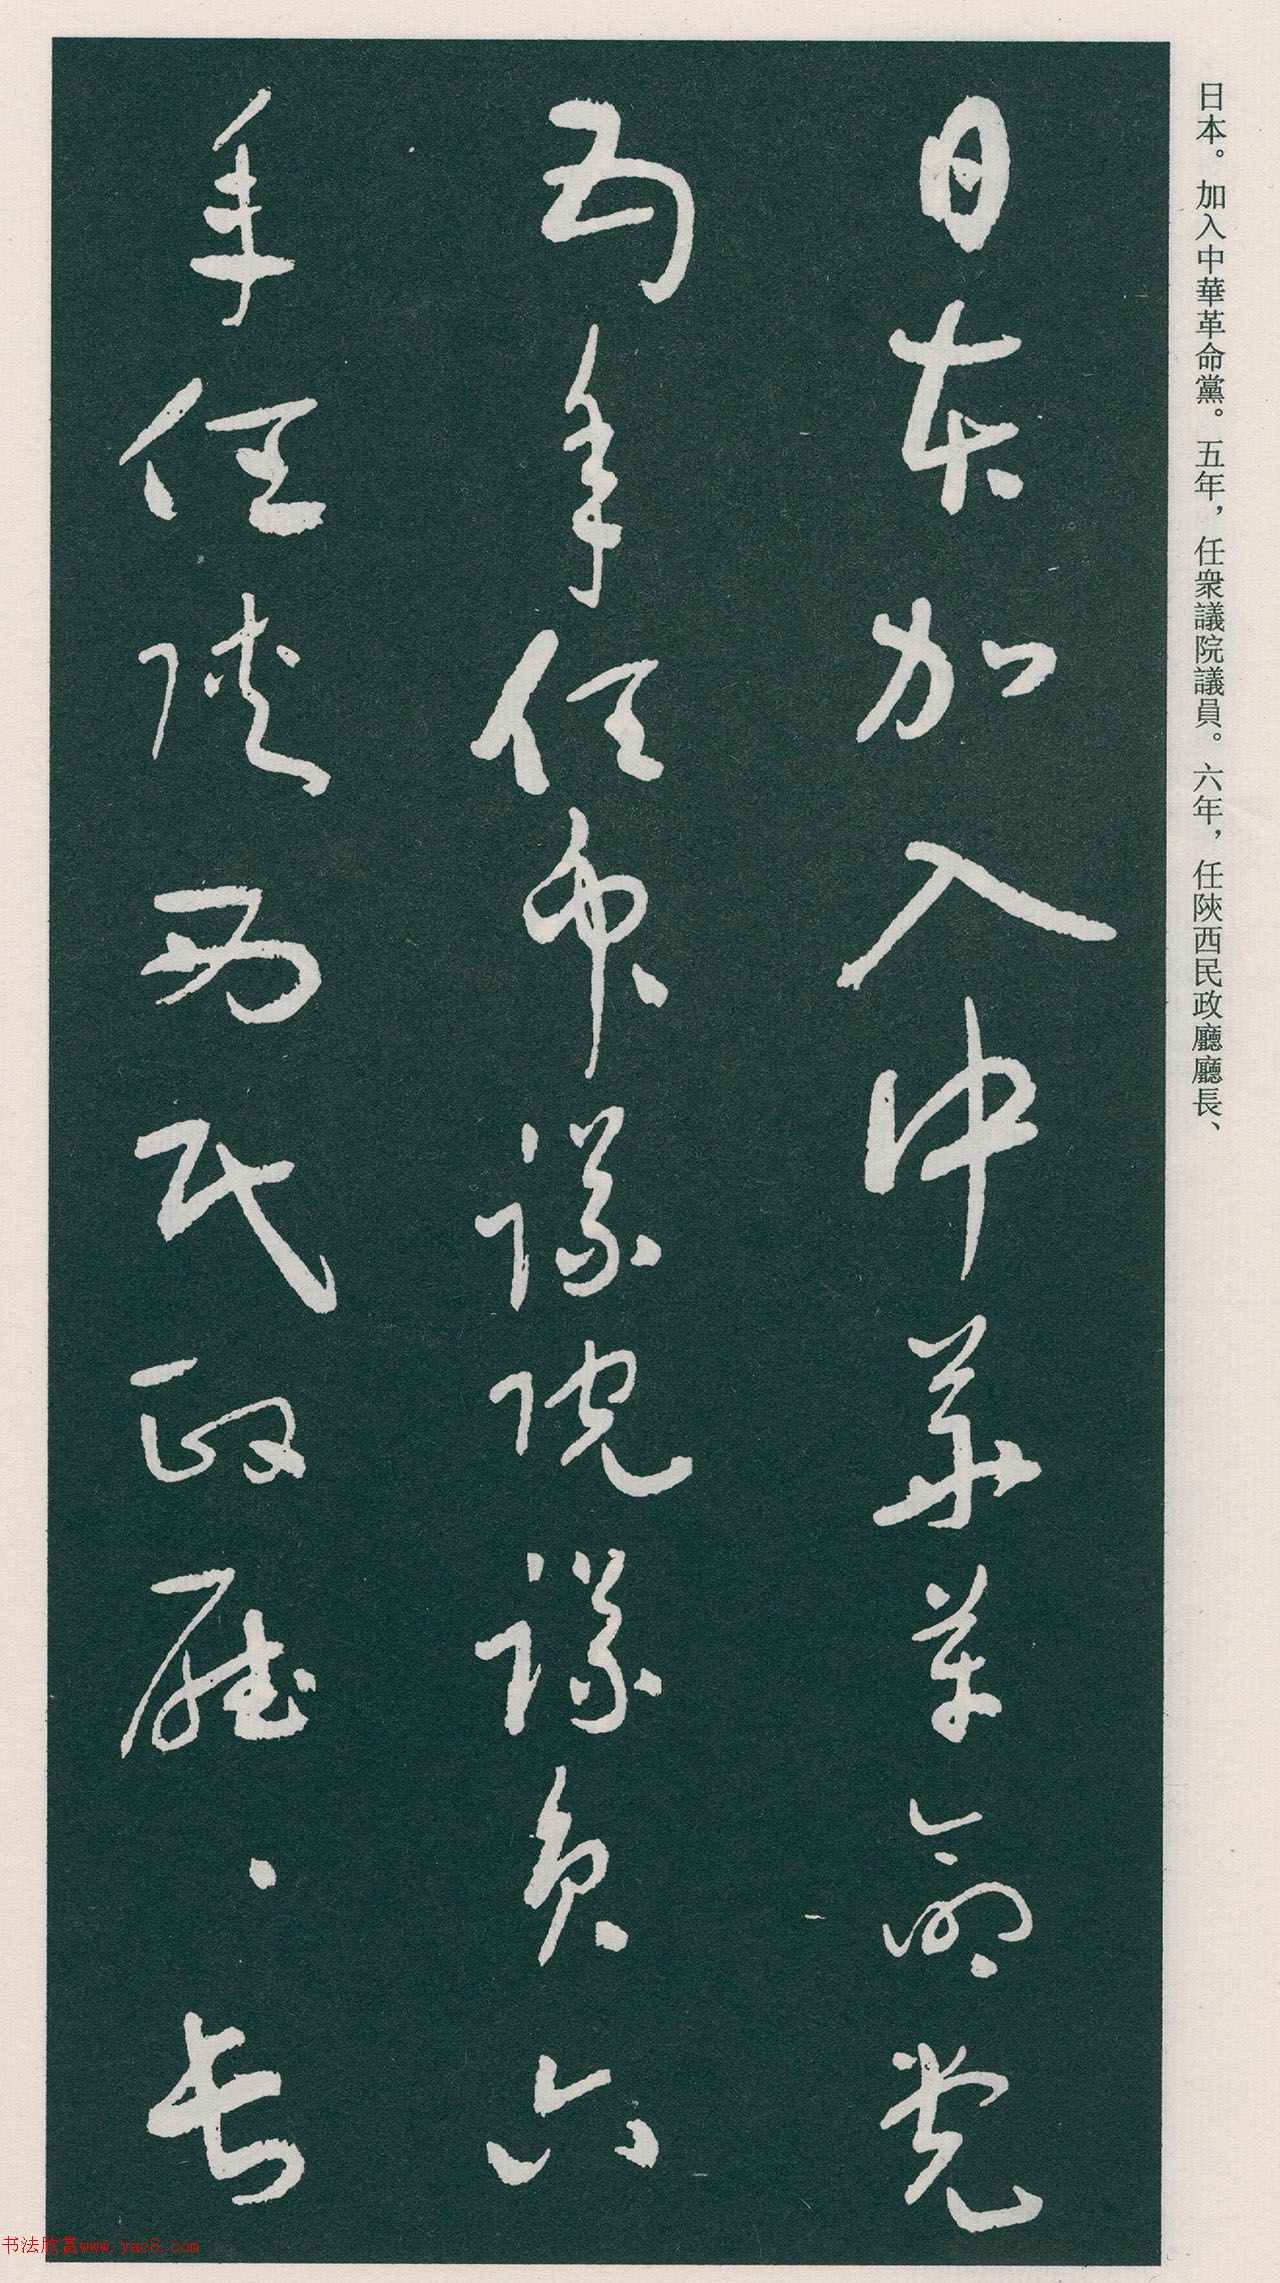 日本。加入中華革命黨。五年，任衆議院議員。六年，任陝西民政廳廳長、
日本加入中華革命党
五年任衆議院議員六
年任陝西民政廳、長
书法欣赏www.yac8.com